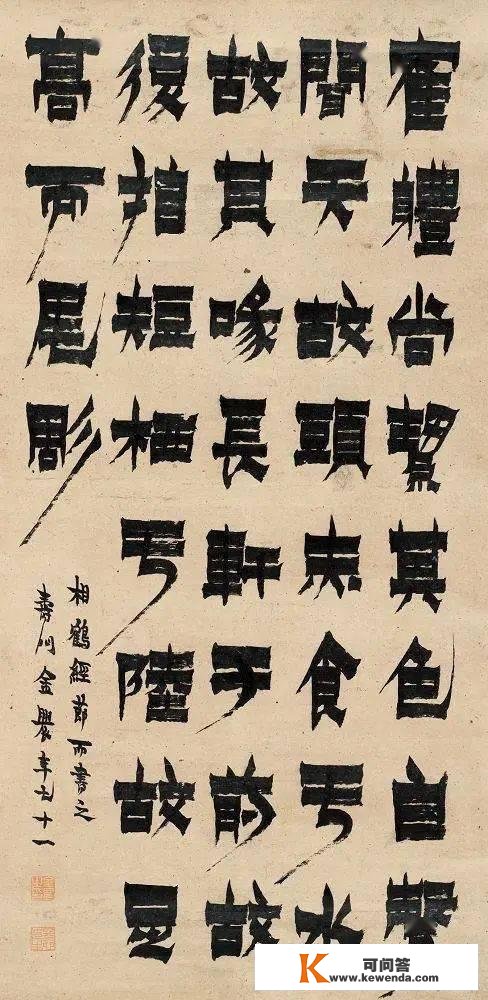 寉體尚絜其色白聲
聞天故頭朱食亏水
故其喙長軒于前故
後指短栖亏陸故足
高而尾彫
相鶴經節而書之
壽門金農年七十一
可问答
www.kewenda.com